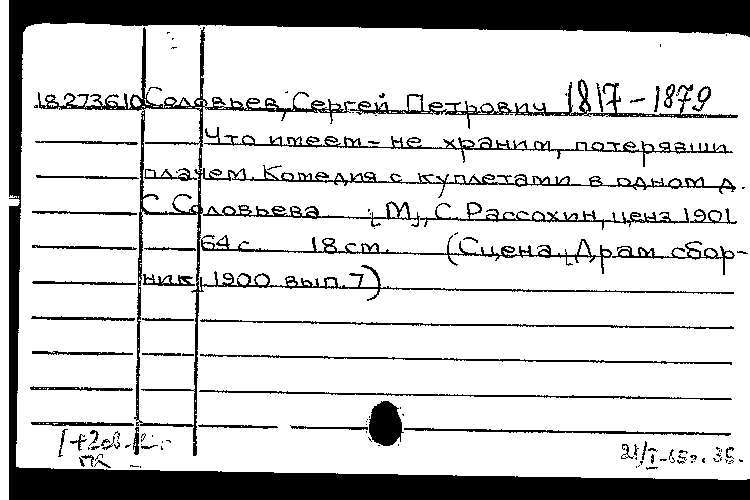 18.273610 Соловьев, Сергей Петрович 1817-1879
Что имеем - не храним, потерявши
плачем. Комедия с куплетами в одном д.
С. Соловьева [М], С. Рассохин, ценз 1901
64 с. 18 см. (Сцена. [Драм. сбор-
ник] 1900 вып. 7)